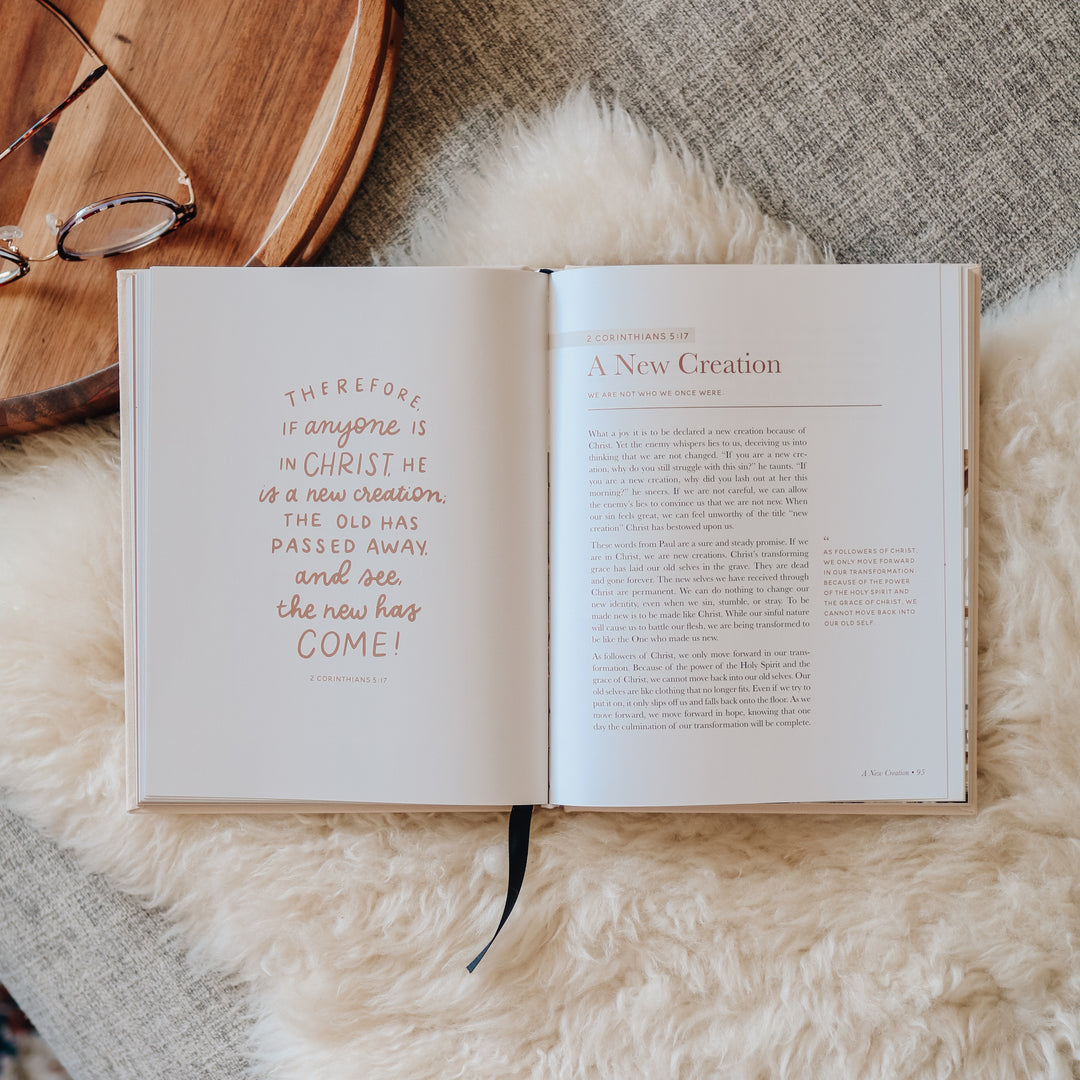 THEREFORE,
IF anyone IS
IN CHRIST, HE
is a new creation;
THE OLD HAS
PASSED AWAY,
and see,
the new has
COME!
2 CORINTHIANS 5:17
2 CORINTHIANS 5:17
A New Creation
WE ARE NOT WHO WE ONCE WERE.
What a joy it is to be declared a new creation because of
Christ. Yet the enemy whispers lies to us, deceiving us into
thinking that we are not changed. “If you are a new cre-
ation, why do you still struggle with this sin?” he taunts. “If
you are a new creation, why did you lash out at her this
morning?” he sneers. If we are not careful, we can allow
the enemy’s lies to convince us that we are not new. When
our sin feels great, we can feel unworthy of the title “new
creation” Christ has bestowed upon us.
These words from Paul are a sure and steady promise. If we
are in Christ, we are new creations. Christ’s transforming
grace has laid our old selves in the grave. They are dead
and gone forever. The new selves we have received through
Christ are permanent. We can do nothing to change our
new identity, even when we sin, stumble, or stray. To be
made new is to be made like Christ. While our sinful nature
will cause us to battle our flesh, we are being transformed to
be like the One who made us new.
As followers of Christ, we only move forward in our trans-
formation. Because of the power of the Holy Spirit and the
grace of Christ, we cannot move back into our old selves. Our
old selves are like clothing that no longer fits. Even if we try to
put it on, it only slips off us and falls back onto the floor. As we
move forward, we move forward in hope, knowing that one
day the culmination of our transformation will be complete.
“
AS FOLLOWERS OF CHRIST,
WE ONLY MOVE FORWARD
IN OUR TRANSFORMATION.
BECAUSE OF THE POWER
OF THE HOLY SPIRIT AND
THE GRACE OF CHRIST, WE
CANNOT MOVE BACK INTO
OUR OLD SELF.
A New Creation • 95